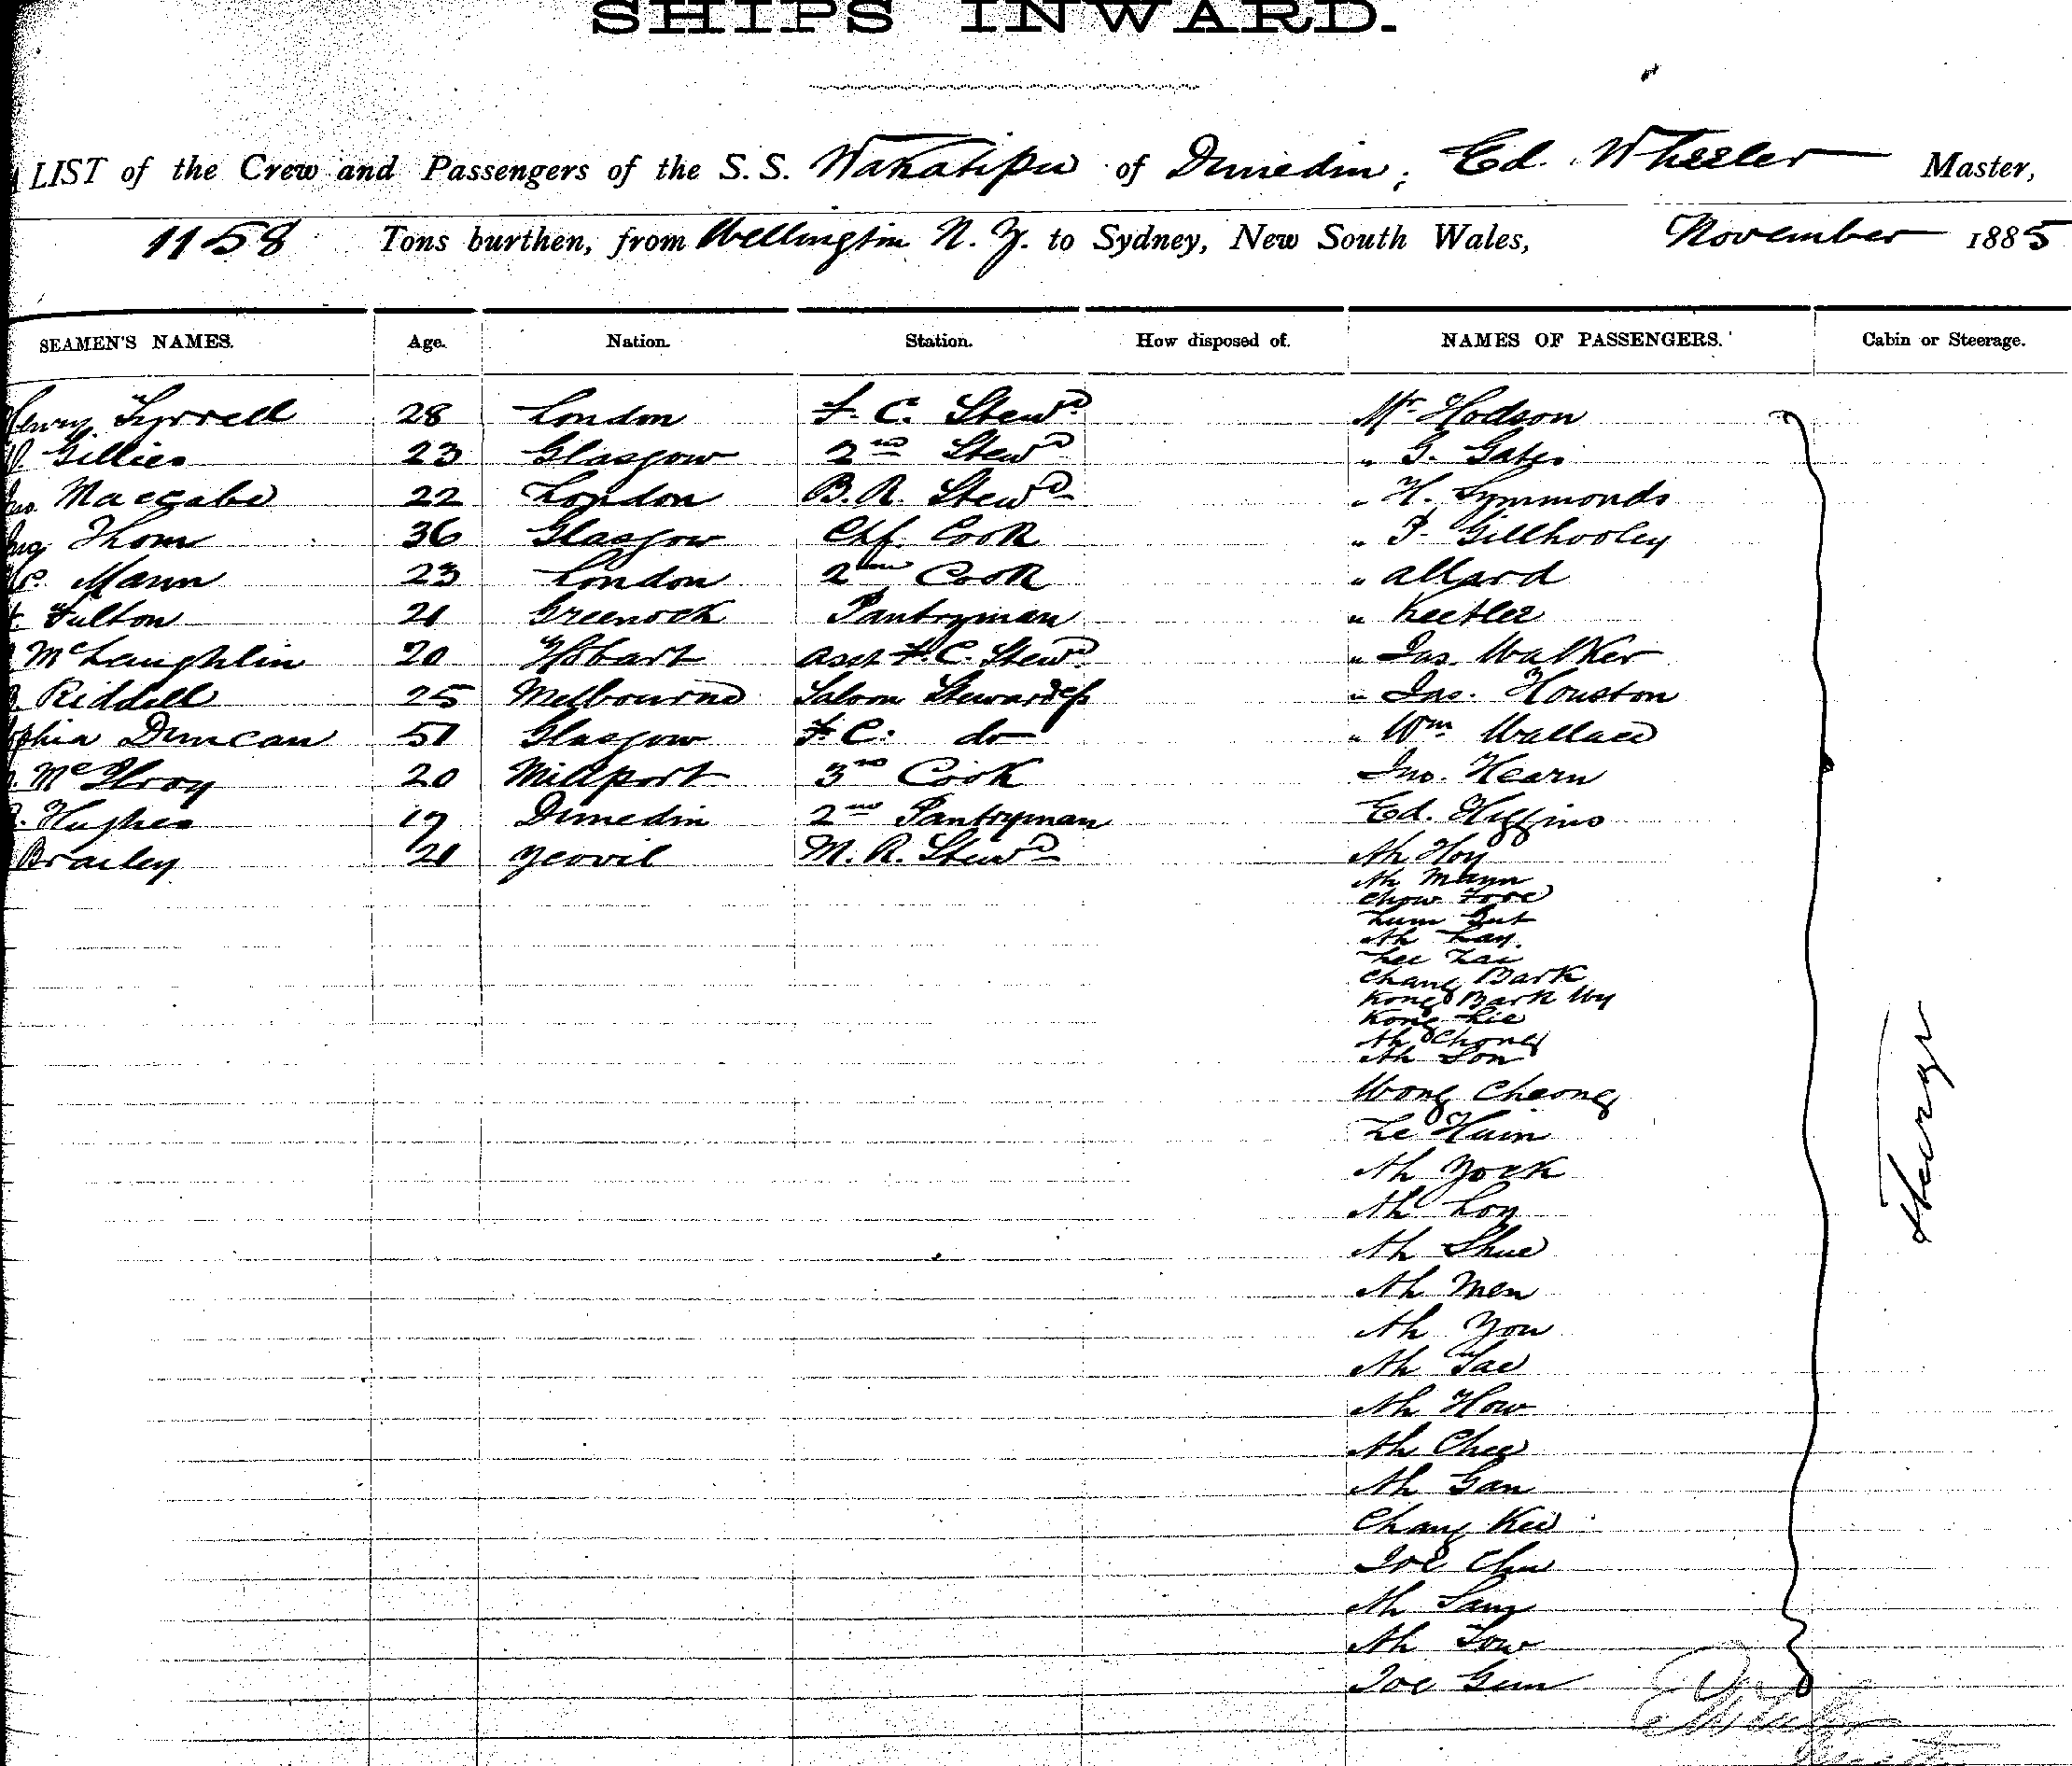 SHIPS INWARD.
LIST of the Crew and Passengers of the S.S. Wakatipu of Dunedin, Ed. Wheeler Master,
1158 Tons burthen, from Wellington N. Z. to Sydney, New South Wales, November 1885
SEAMEN'S NAMES. Age. Nation. Station. How disposed of. NAMES OF PASSENGERS. Cabin or Steerage.
Henry Tyrrell 28 London F. C. Stewd Mr Hodson
Gillies 23 Glasgow 2nd Stewd " G. Gates
Jno. Maccabe 22 London B. R. Stewd " H. Symmonds
Thom 36 Glasgow Chf. Cook " P. Gillhooley
Mann 23 London 2nd Cook " Allard
Fulton 21 Greenock Pantryman "
McLaughlin 20 Hobart Asst F. C. Stewd " Jas. Walker
Riddell 25 Melbourne Saloon Stewardess " Jas. Houston
ophia Duncan 51 Glasgow F. C. do " Wm Wallace
McIlroy 20 Millport 3rd Cook Jno. Hearn
Hughes 19 Dunedin 2nd Pantryman Ed. Higgins
Brailey 21 Yeovil M. R. Stewd Ah Hoy
Ah Mann
Chow Fore
Lum Gut
Ah Lay
Lee Lai
Chang Bark
Kong Bark Wy
Kong Lie
Ah Chong
Ah Son
Wong Cheong
Le Hain
Ah Yock
Ah Loy
Ah Shue
Ah Men
Ah You
Ah Tae
Ah How
Ah Chee
Ah Gan
Chang Kee
Joe Chu
Ah Sang
Ah Tow
Joe Gum
Steerage